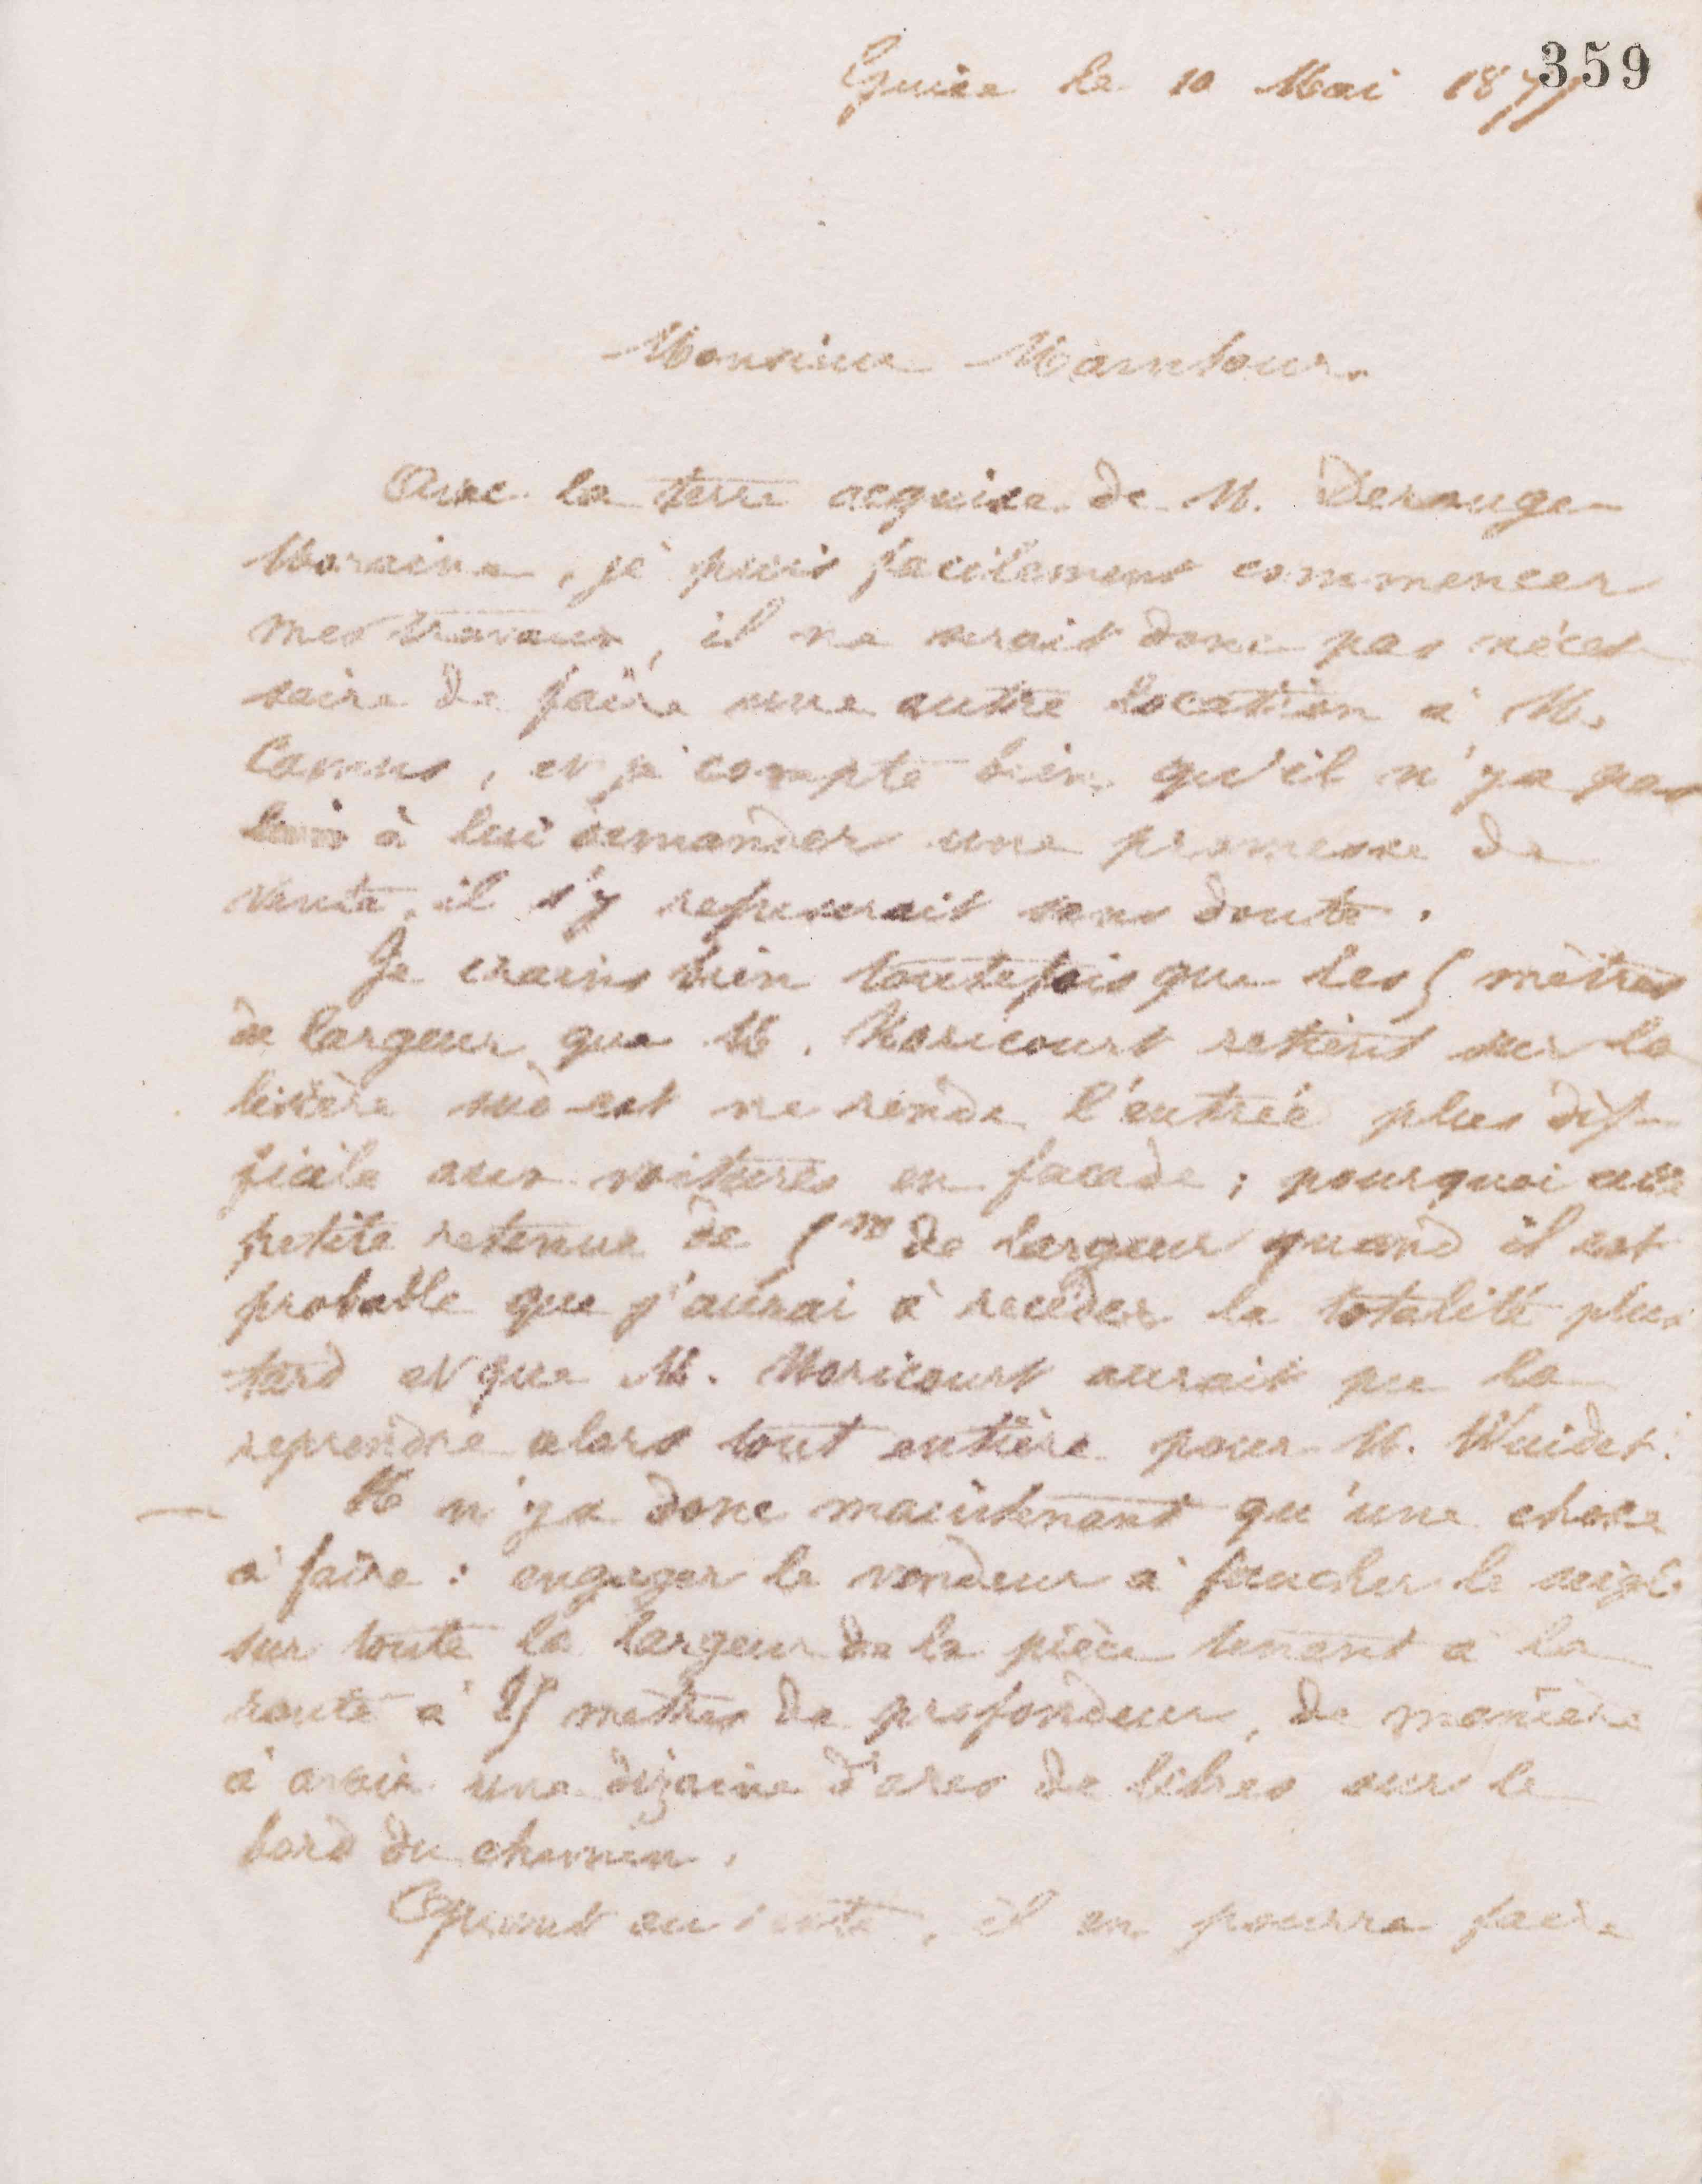 359
Guise le 10 Mai 1877
Monsieur Maintour.
Avec la terre acquise de M. Derouge
Moraine, je puis facilement commencer
mes travaux, il ne serait donc pas néces
saire de faire une autre location à M.
Camus, et je compte bien qu'il n'y a pas
lieu à lui demander une promesse de
vente, il s'y refuserait sans doute.
Je crains bien toutefois que les 5 mètres
de largeur que M. Noricourt retient sur la
lisière sud-est ne rende l'entrée plus dif-
ficile aux voitures en facade ; pourquoi cette
petite retenue de 5m de largeur quand il est
probable que j'aurai à recéder la totalité plus
tard et que M. Noricourt aurait pu la
reprendre alors tout entière pour M. Waidet.
Il n'y a donc maintenant qu'une chose
à faire : engager le vendeur à faucher le seigle
sur toute la largeur de la pièce tenant à la
route à 25 mètres de profondeur, de manière
à avoir une dizaine d'ares de libres sur le
bord du chemin.
Quant au reste, il en pourra faire